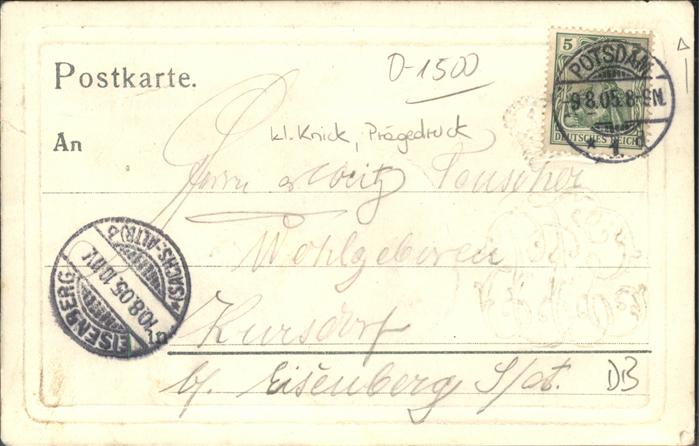 Postkarte.
D-1500
5
DEUTSCHES REICH
POTSDAM
9.8.05.8-9N.
* 1
An
kl. Knick, Prägedruck
Herrn Moritz Teuscher
Wohlgeboren
in Kursdorf
b/ Eisenberg S/A.
EISENBERG
10.8.05.10-11V.
*(SACHS.-ALTB)*
DB